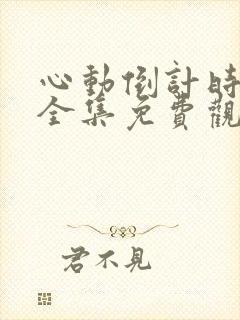 心動倒計時
全集免費觀
君不見